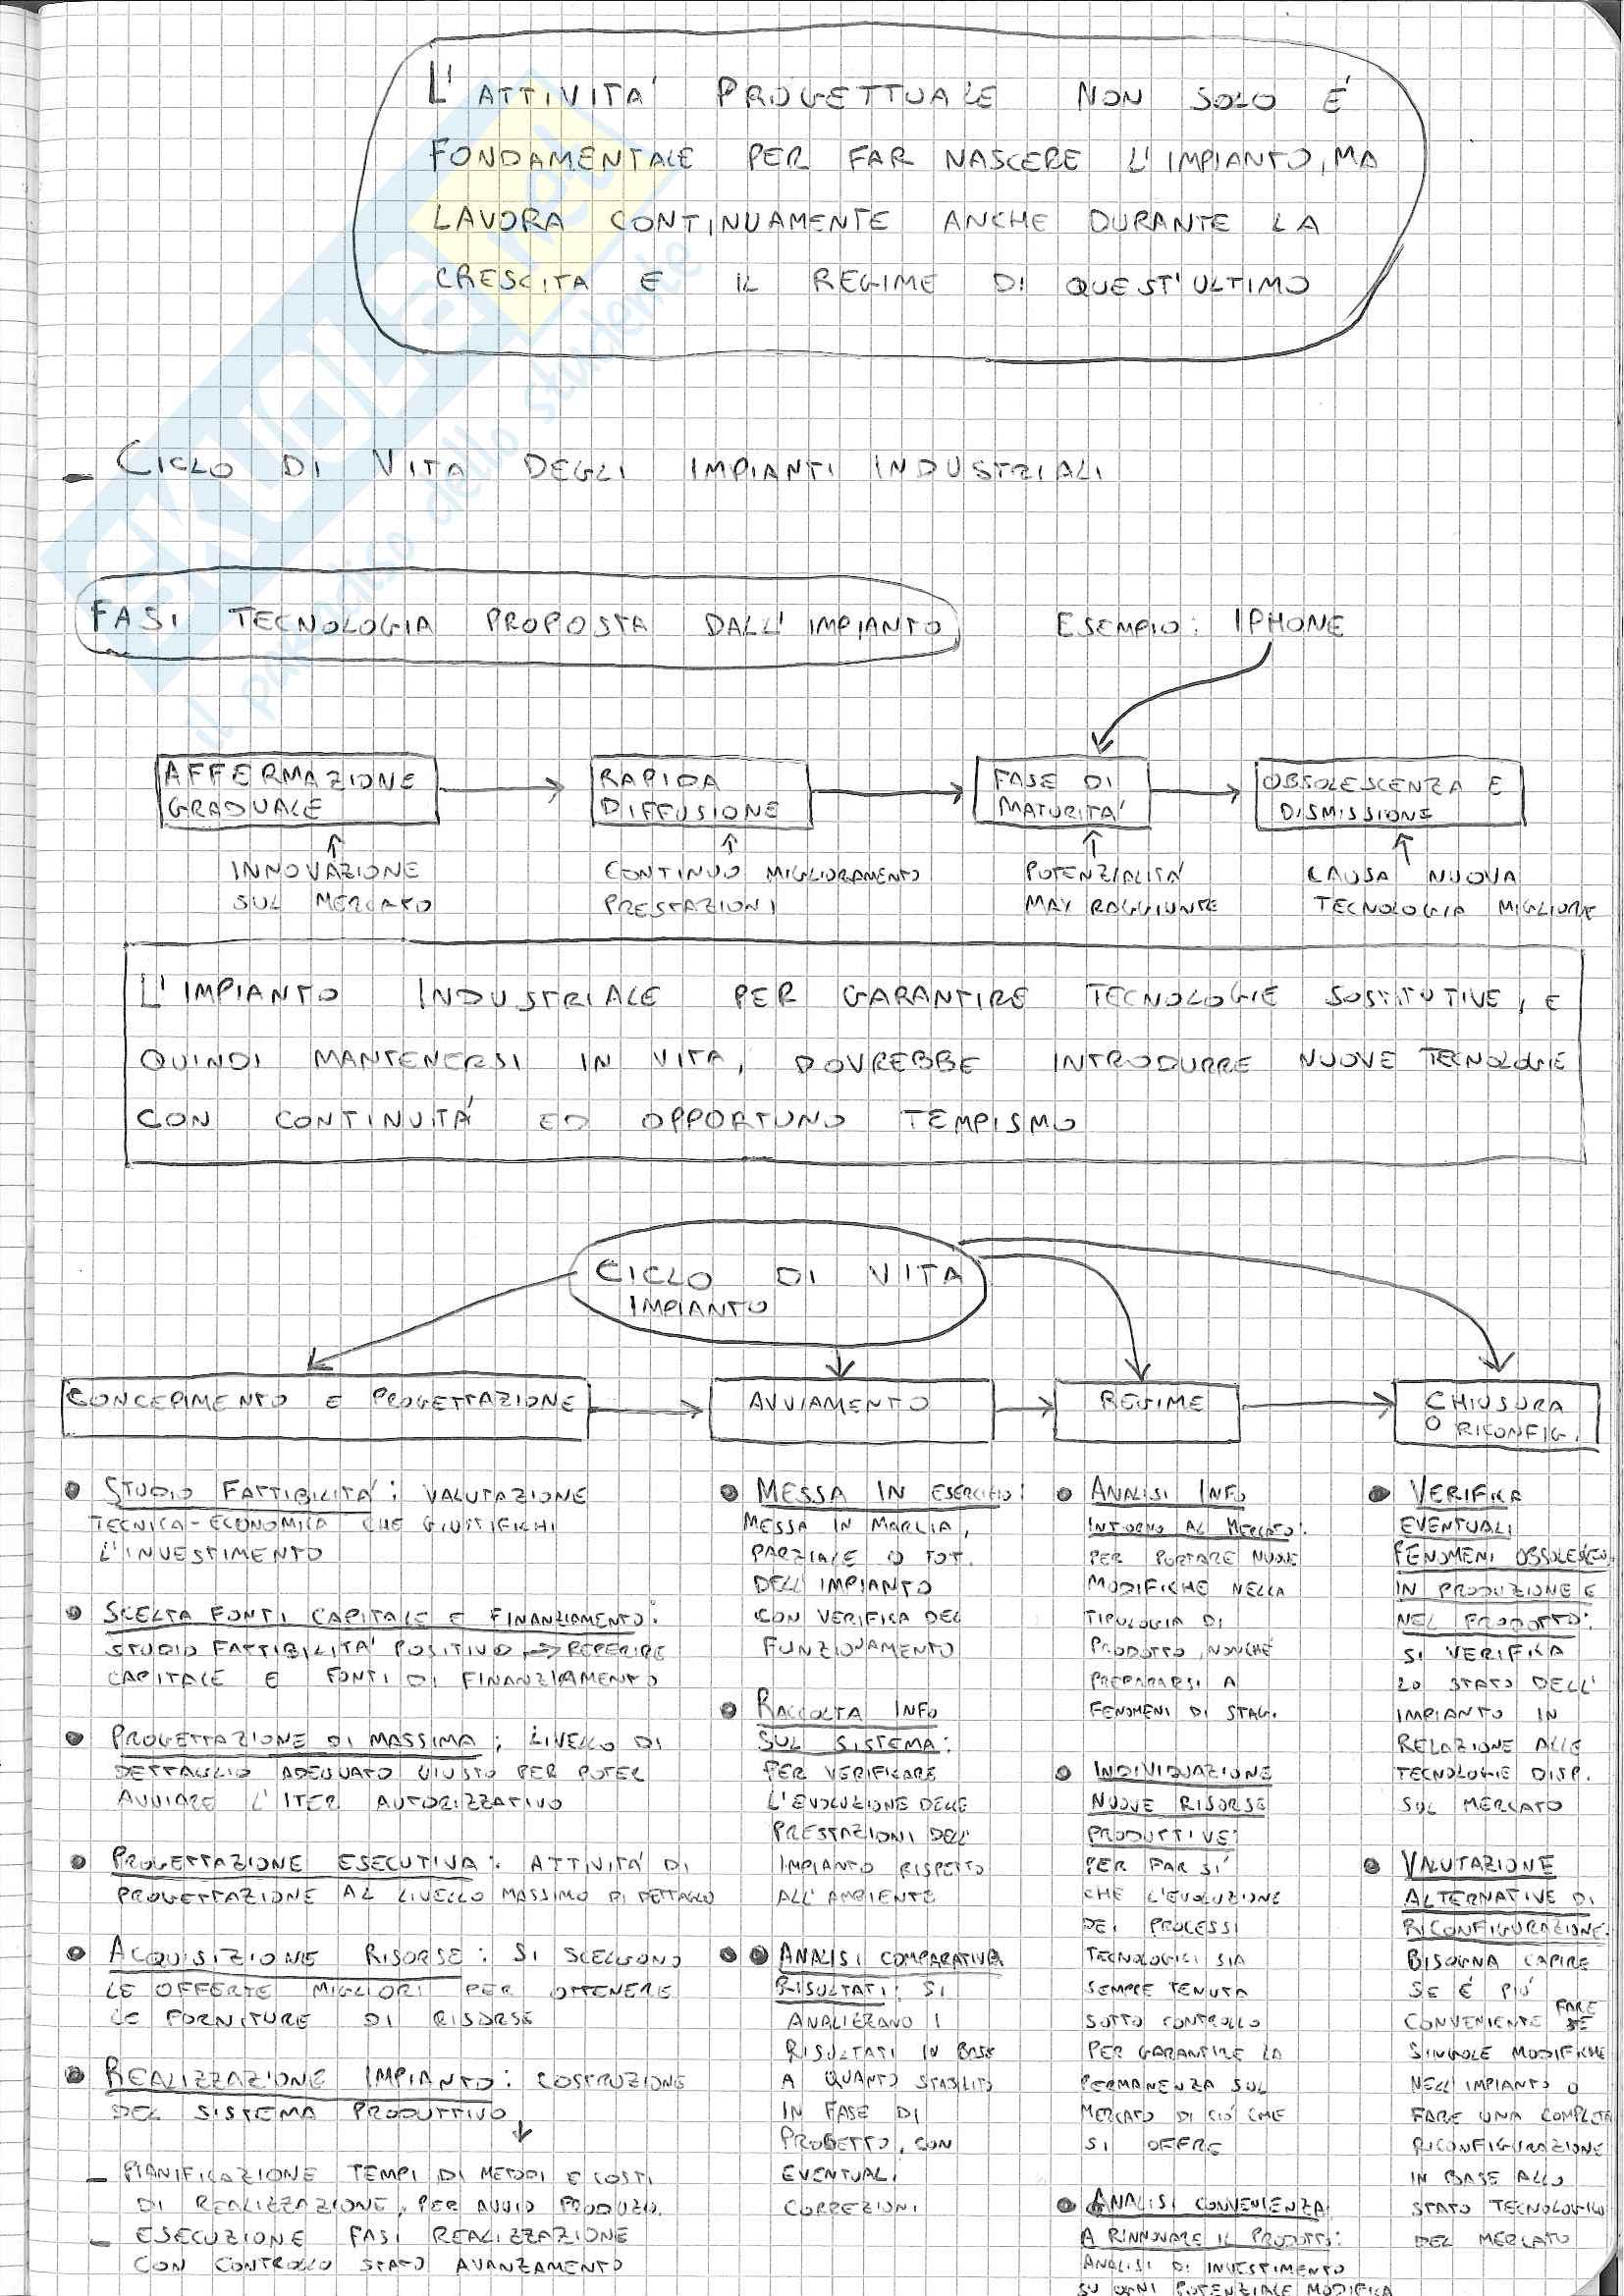 L'ATTIVITA' PROGETTUALE NON SOLO É
FONDAMENTALE PER FAR NASCERE L'IMPIANTO, MA
LAVORA CONTINUAMENTE ANCHE DURANTE LA
CRESCITA E IL REGIME DI QUEST'ULTIMO
SKUOLA.net
il paradiso dello studente
- CICLO DI VITA DEGLI IMPIANTI INDUSTRIALI
FASI TECNOLOGIA PROPOSTA DALL'IMPIANTO
ESEMPIO: IPHONE
AFFERMAZIONE
GRADUALE
RAPIDA
DIFFUSIONE
FASE DI
MATURITA'
OBSOLESCENZA E
DISMISSIONE
INNOVAZIONE
SUL MERCATO
CONTINUO MIGLIORAMENTO
PRESTAZIONI
POTENZIALITÁ
MAX RAGGIUNTE
CAUSA NUOVA
TECNOLOGIA MIGLIORE
L'IMPIANTO INDUSTRIALE PER GARANTIRE TECNOLOGIE SOSTITUTIVE, E
QUINDI MANTENERSI IN VITA, DOVREBBE INTRODURRE NUOVE TECNOLOGIE
CON CONTINUITÁ ED OPPORTUNO TEMPISMO
CICLO DI VITA
IMPIANTO
CONCEPIMENTO E PROGETTAZIONE
AVVIAMENTO
REGIME
CHIUSURA
O RICONFIG.
• STUDIO FATTIBILITA': VALUTAZIONE
TECNICA-ECONOMICA CHE GIUSTIFICHI
L'INVESTIMENTO
• SCELTA FONTI CAPITALE E FINANZIAMENTO:
STUDIO FATTIBILITA' POSITIVO → REPERIRE
CAPITALE E FONTI DI FINANZIAMENTO
• PROGETTAZIONE DI MASSIMA: LIVELLO DI
DETTAGLIO ADEGUATO GIUSTO PER POTER
AVVIARE L'ITER AUTORIZZATIVO
• PROGETTAZIONE ESECUTIVA: ATTIVITÁ DI
PROGETTAZIONE AL LIVELLO MASSIMO DI DETTAGLIO
• ACQUISIZIONE RISORSE: SI SCELGONO
LE OFFERTE MIGLIORI PER OTTENERE
LE FORNITURE DI RISORSE
• REALIZZAZIONE IMPIANTO: COSTRUZIONE
DEL SISTEMA PRODUTTIVO
- PIANIFICAZIONE TEMPI DI METODI E COSTI
DI REALIZZAZIONE, PER AVVIO PRODUZ.
- ESECUZIONE FASI REALIZZAZIONE
CON CONTROLLO STATO AVANZAMENTO
• MESSA IN ESERCIZIO:
MESSA IN MARCIA,
PARZIALE O TOT.
DELL'IMPIANTO
CON VERIFICA DEL
FUNZIONAMENTO
• RACCOLTA INFO
SUL SISTEMA:
PER VERIFICARE
L'EVOLUZIONE DELLE
PRESTAZIONI DELL'
IMPIANTO RISPETTO
ALL'AMBIENTE
• • ANALISI COMPARATIVA
RISULTATI: SI
ANALIZZANO I
RISULTATI IN BASE
A QUANTO STABILITO
IN FASE DI
PROGETTO, CON
EVENTUALI
CORREZIONI
• ANALISI INFO
INTORNO AL MERCATO:
PER PORTARE NUOVE
MODIFICHE NELLA
TIPOLOGIA DI
PRODOTTO, NONCHÉ
PREPARARSI A
FENOMENI DI STAG.
• INDIVIDUAZIONE
NUOVE RISORSE
PRODUTTIVE:
PER FAR SI'
CHE L'EVOLUZIONE
DEI PROCESSI
TECNOLOGICI SIA
SEMPRE TENUTA
SOTTO CONTROLLO
PER GARANTIRE LA
PERMANENZA SUL
MERCATO DI CIÓ CHE
SI OFFRE
• ANALISI CONVENIENZA
A RINNOVARE IL PRODOTTO:
ANALISI DI INVESTIMENTO
SU OGNI POTENZIALE MODIFICA
• VERIFICA
EVENTUALI
FENOMENI OBSOLESC.
IN PRODUZIONE E
NEL PRODOTTO:
SI VERIFICA
LO STATO DELL'
IMPIANTO IN
RELAZIONE ALLE
TECNOLOGIE DISP.
SUL MERCATO
• VALUTAZIONE
ALTERNATIVE DI
RICONFIGURAZIONE:
BISOGNA CAPIRE
SE É PIÚ
CONVENIENTE FARE
SINGOLE MODIFICHE
NELL'IMPIANTO O
FARE UNA COMPLETA
RICONFIGURAZIONE
IN BASE ALLO
STATO TECNOLOGICO
DEL MERCATO